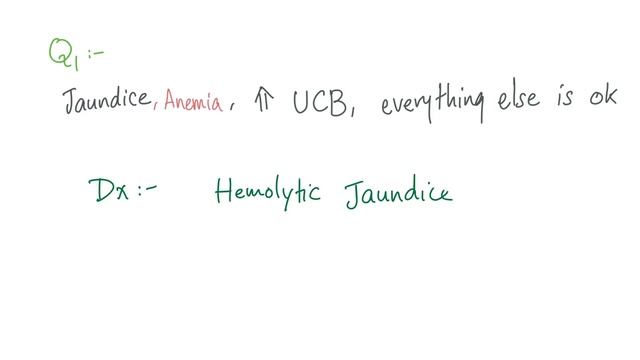 Q1 :-
Jaundice, Anemia, ⇑ UCB, everything else is ok
Dx :- Hemolytic Jaundice